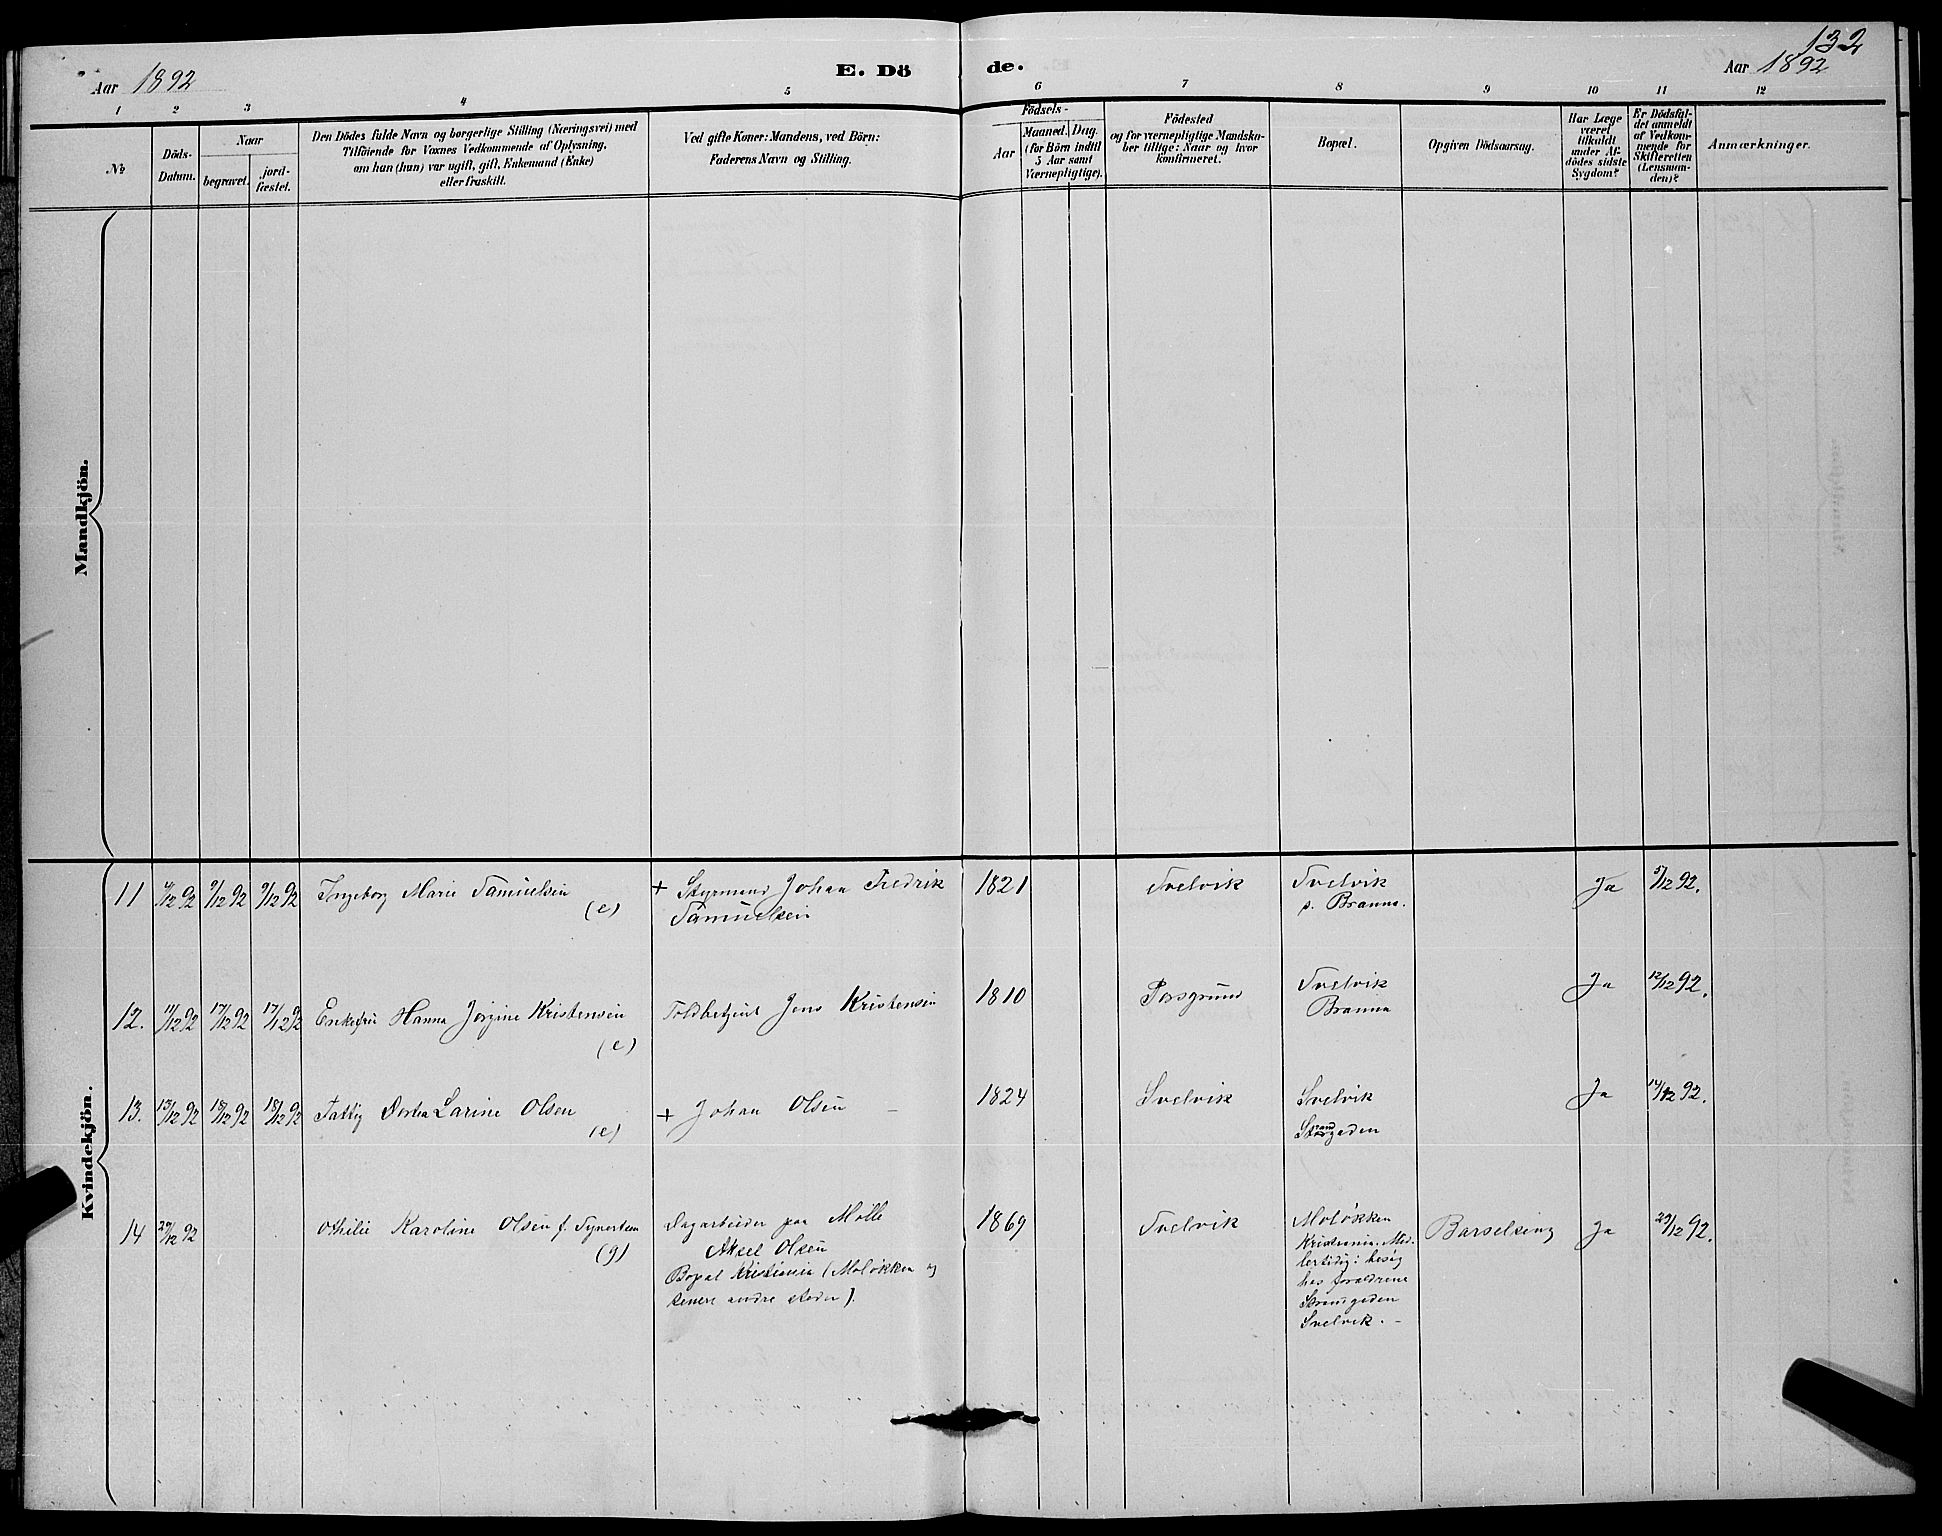 132
Aar 1892
E. Dö
de.
Aar 1892
1 2 3 4 5 6 7 8 9 10 11 12
№
Döds-
Datum.
Naar
begravet.
jord-
fæstet.
Den Dödes fulde Navn og borgerlige Stilling (Næringsvei) med
Tilföiende for Voxnes Vedkommende af Oplysning,
om han (hun) var ugift, gift, Enkemand (Enke)
eller fraskilt.
Ved gifte Koner: Mandens, ved Börn:
Faderens Navn og Stilling.
Födsels-
Aar
Maaned. Dag.
(for Börn indtil
5 Aar samt
Værnepligtige).
Födested
og for værnepligtige Mandska-
ber tillige: Naar og hvor
konfirmeret.
Bopæl.
Opgiven Dödsaarsag.
Har Læge
været
tilkaldt
under Af-
dödes sidste
Sygdom?
Er Dödsfal-
det anmeldt
af Vedkom-
mende for
Skifteretten
(Lensman-
den)?
Anmærkninger.
Mandkjön.
Kvindekjön.
11 4/12 92 9/12 92 9/12 92 Ingeborg Marie Samuelsen
(e)
+ Styrmand Johan Fredrik
Samuelsen
1821 Svelvik
Svelvik
s. Branna.
Ja 5/12 92.
12. 11/12 92 17/12 92 17/12 92 Enkefru Hanna Jörgine Kristensen
(e)
Toldbetjent Jens Kristensen
1810 Porsgrund
Svelvik
Branna
Ja 12/12 92.
13. 13/12 92 18/12 92 18/12 92 Fattig Dortea Larine Olsen
(e)
+ Johan Olsen –
1824 Svelvik
Svelvik
Strandgaden
Ja 14/12 92.
14 29/12 92 Othilie Karoline Olsen f. Syvertsen
(g)
Dagarbeider paa Mölle
Aksel Olsen
Bopæl Kristiania (Moløkken og
senere andre steder).
1869 Svelvik
Moløkken
Kristiania. Mid-
lertidig i besög
hos foraeldrene
Strandgaden
Svelvik. –
Barselseng Ja 29/12 92.